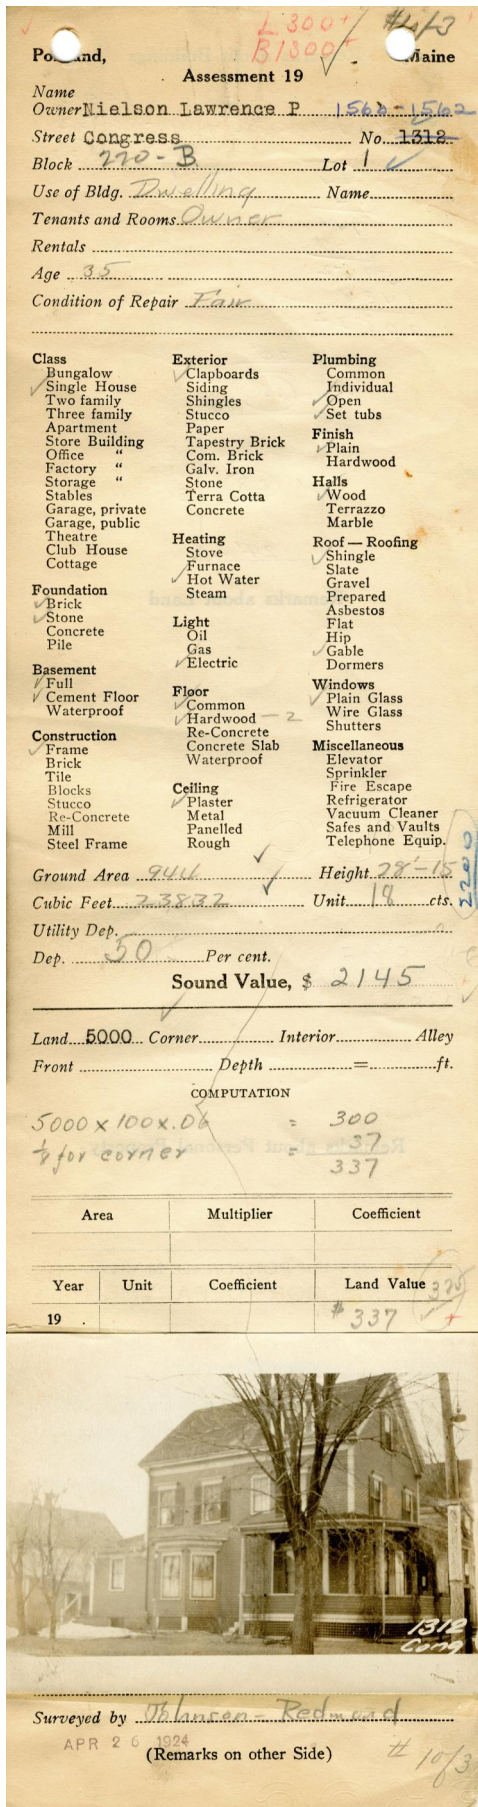 L 300+ #1of3
B1300+
Portland, Maine
Assessment 19
Name
Owner Nielson Lawrence P 1560-1562
Street Congress No. 1312
Block 220-B Lot 1
Use of Bldg. Dwelling Name
Tenants and Rooms Owner
Rentals
Age 35
Condition of Repair Fair
Class
Bungalow
Single House
Two family
Three family
Apartment
Store Building
Office "
Factory "
Storage "
Stables
Garage, private
Garage, public
Theatre
Club House
Cottage
Foundation
Brick
Stone
Concrete
Pile
Basement
Full
Cement Floor
Waterproof
Construction
Frame
Brick
Tile
Blocks
Stucco
Re-Concrete
Mill
Steel Frame
Exterior
Clapboards
Siding
Shingles
Stucco
Paper
Tapestry Brick
Com. Brick
Galv. Iron
Stone
Terra Cotta
Concrete
Heating
Stove
Furnace
Hot Water
Steam
Light
Oil
Gas
Electric
Floor
Common
Hardwood - 2
Re-Concrete
Concrete Slab
Waterproof
Ceiling
Plaster
Metal
Panelled
Rough
Plumbing
Common
Individual
Open
Set tubs
Finish
Plain
Hardwood
Halls
Wood
Terrazzo
Marble
Roof — Roofing
Shingle
Slate
Gravel
Prepared
Asbestos
Flat
Hip
Gable
Dormers
Windows
Plain Glass
Wire Glass
Shutters
Miscellaneous
Elevator
Sprinkler
Fire Escape
Refrigerator
Vacuum Cleaner
Safes and Vaults
Telephone Equip.
2200
Ground Area 944 Height 28'-15
Cubic Feet 23832 Unit 18 cts.
Utility Dep.
Dep. 50 Per cent.
Sound Value, $ 2145
Land 5000 Corner Interior Alley
Front Depth = ft.
COMPUTATION
5000 x 100 x .06 = 300
1/8 for corner = 37
337
Area Multiplier Coefficient
Year Unit Coefficient Land Value 325
19 . $ 337 +
1312
Cong
Surveyed by Johnson - Redmund
APR 26 1924
(Remarks on other Side) # 1of3